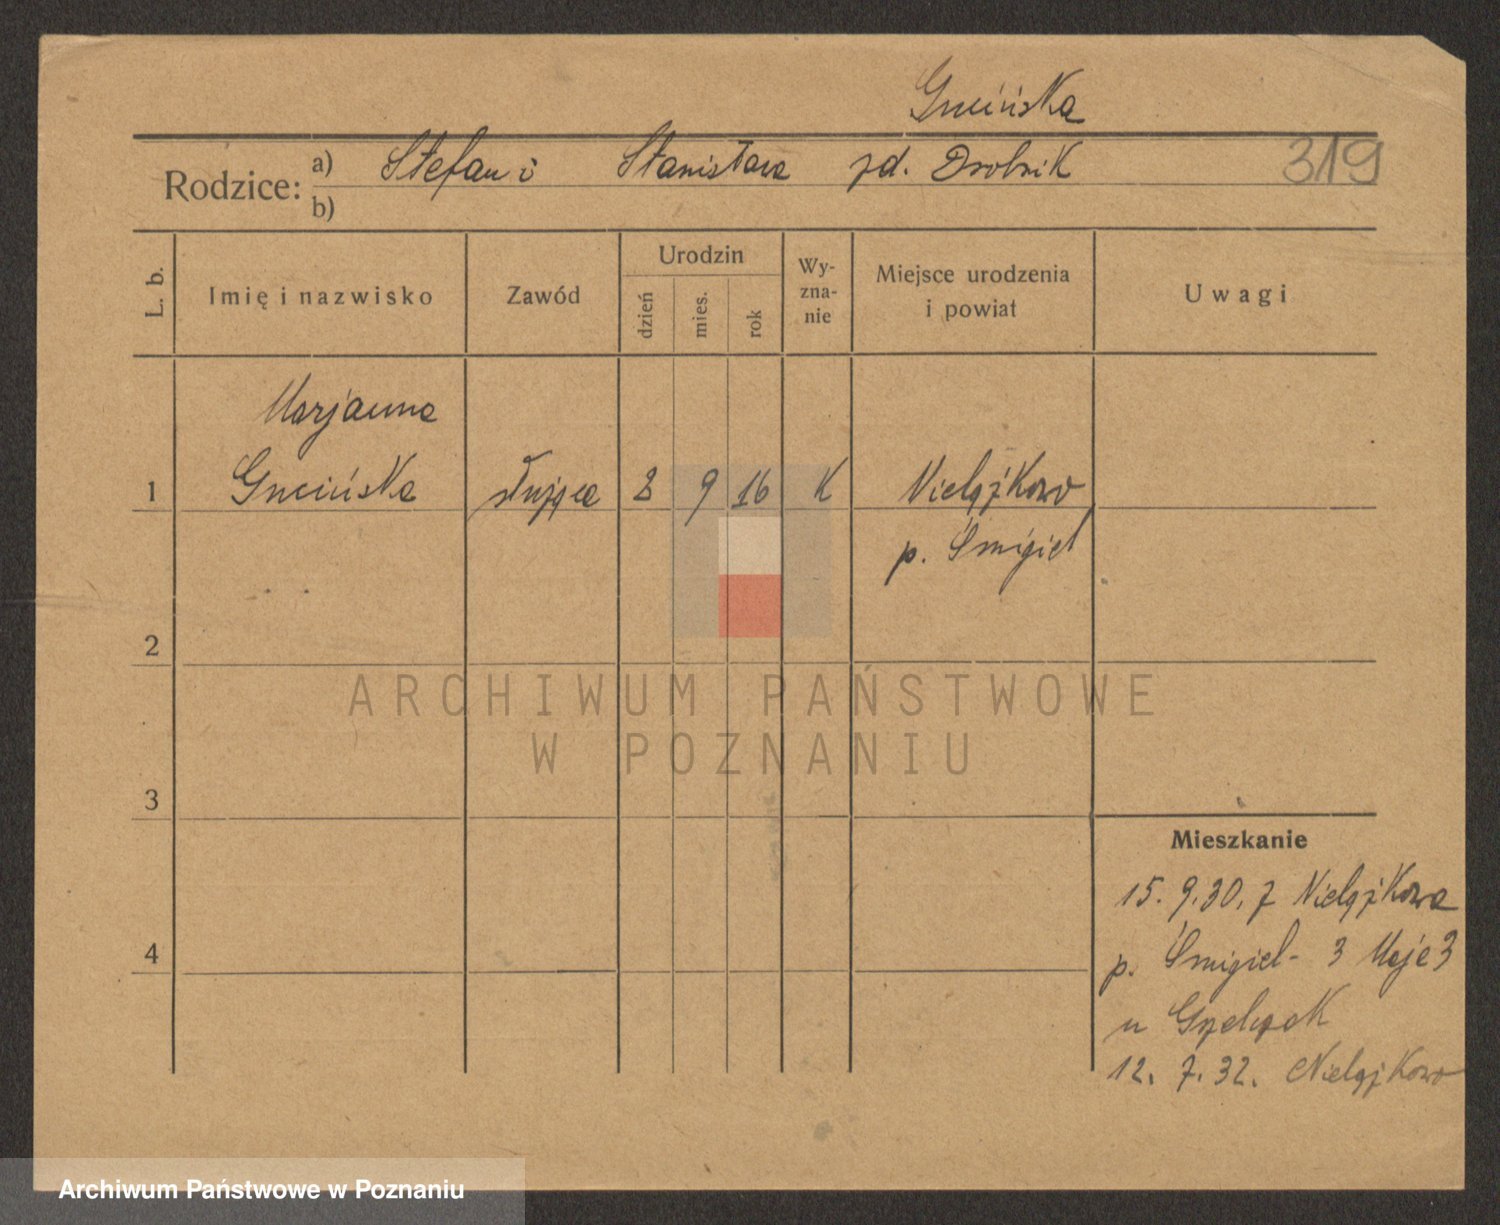 Gneińska
Rodzice: a) Stefan i Stanisława zd. Drobnik
319
b)
L. b.
Imię i nazwisko
Zawód
Urodzin
dzień
mies.
rok
Wy-
zna-
nie
Miejsce urodzenia
i powiat
Uwagi
Marjanna
1 Gneińska służąca 8 9 16 K Nielążkowo
p. Śmigiel
2
ARCHIWUM PAŃSTWOWE
W POZNANIU
3
Mieszkanie
15. 9. 30. z Nielążkowa
4
p. Śmigiel - 3 Maja 3
u
12. 7. 32. Nielążkowo
Archiwum Państwowe w Poznaniu